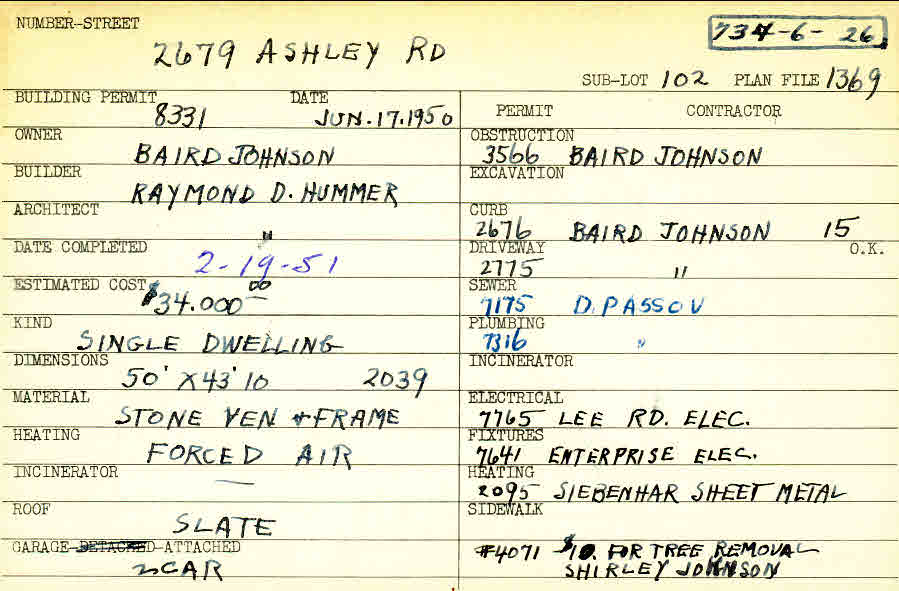 NUMBER-STREET
2679 ASHLEY RD
734-6-26
SUB-LOT 102 PLAN FILE 1369
BUILDING PERMIT 8331 DATE JUN.17.1950
OWNER BAIRD JOHNSON
BUILDER RAYMOND D. HUMMER
ARCHITECT "
DATE COMPLETED 2-19-51
ESTIMATED COST $34.000 00
KIND SINGLE DWELLING
DIMENSIONS 50' X 43' 10 2039
MATERIAL STONE VEN + FRAME
HEATING FORCED AIR
INCINERATOR —
ROOF SLATE
GARAGE-DETACHED-ATTACHED
2 CAR
PERMIT CONTRACTOR
OBSTRUCTION
3566 BAIRD JOHNSON
EXCAVATION
CURB
2676 BAIRD JOHNSON 15
DRIVEWAY O.K.
2775 "
SEWER
7175 D. PASSOV
PLUMBING
7316 "
INCINERATOR
ELECTRICAL
7765 LEE RD. ELEC.
FIXTURES
7641 ENTERPRISE ELEC.
HEATING
2095 SIEBENHAR SHEET METAL
SIDEWALK
#4071 $10. FOR TREE REMOVAL
SHIRLEY JOHNSON